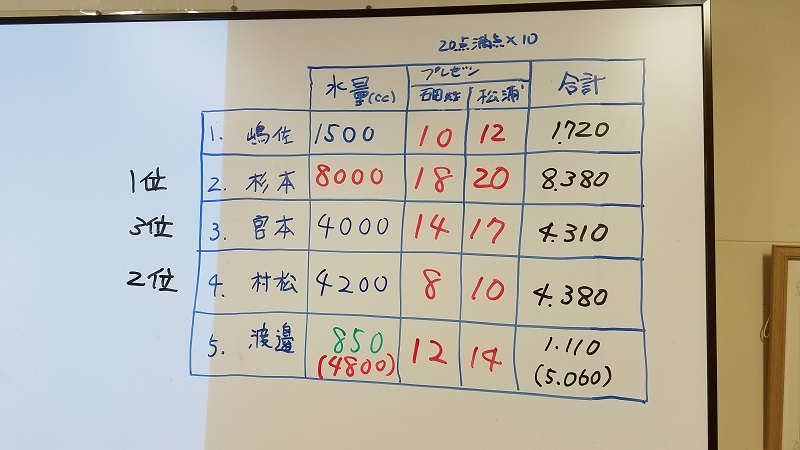 20点満点×10
水量(cc) プレゼン 合計
石田 松浦
1. 嶋佐 1500 10 12 1.720
1位 2. 杉本 8000 18 20 8.380
3位 3. 宮本 4000 14 17 4.310
2位 4. 村松 4200 8 10 4.380
5. 渡邉 850 12 14 1.110
(4800) (5.060)